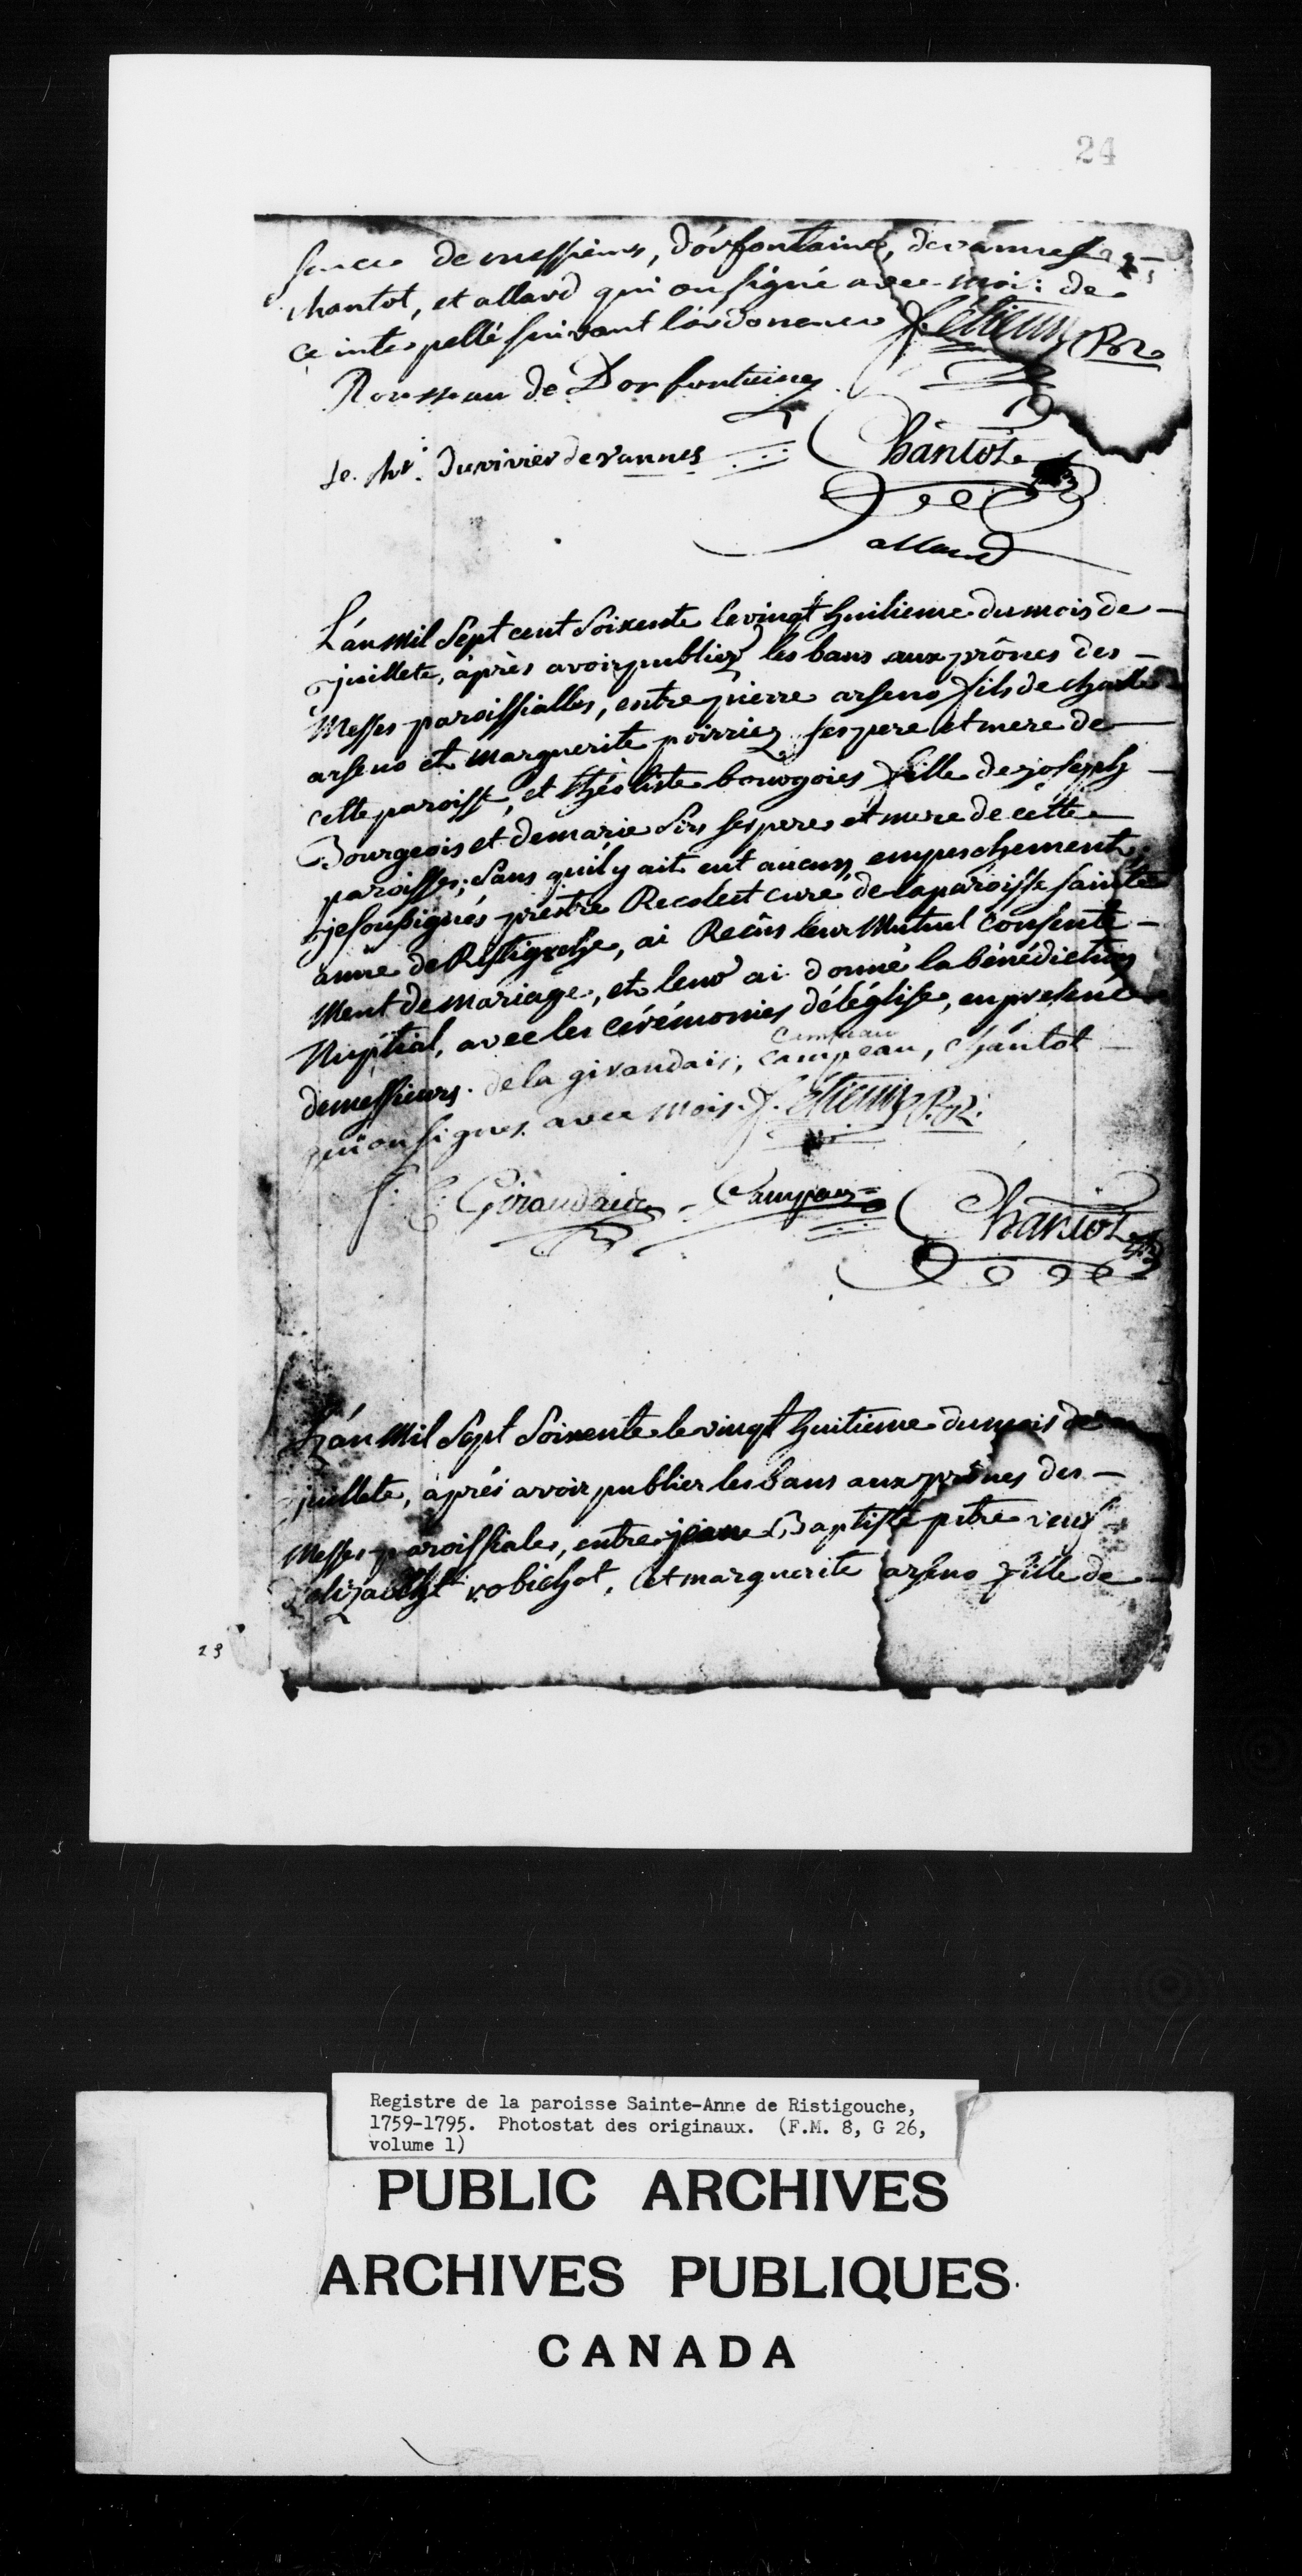 24
sence de messieurs, d'orfontaine, devannes
chantot, et allard qui on signé avec moi: de
ce interpellé suivant lórdonence f. étienne P.R.
Rousseau de Dorfontaine
le chr. Duvivier de vannes Chantot
allard
L'án mil sept cent soixente le vingt huitieme du mois de
juillete, àprès avoir publiez les bans aux prônes des
Messes paroissialles, entre pierre arseno fils de charle
arseno et marguerite poirriez ses pere et mere de
cette paroisse, et théotiste bourgoies fille de joseph
Bourgeois et de marie Sirs ses pere et mere de cette
paroisses; sans quil y ait eut aucun empeschement,
je sousignés prestre Recolect curé de la paroisse sainte
anne de Ristigouche, ai Recûs leur Mutuel consente
Ment de mariage, et leur ai donné la bénédiction
Nuptial, avec les cérémonies déléglise, en presence
campeau
de messieurs. de la giraudais; campeau, chantot
qui on signes avec mois. f. étienne P.R.
Giraudais Campeau Chantot
L'án Mil Sept Soixente le vingt huitieme du mois de
juillete, àprés avoir publier les bans aux prônes des
Messes paroissiales, entre jean Baptiste pitre veuf
d'elizabeth robichot, et marguerite arseno fille de
23
Registre de la paroisse Sainte-Anne de Ristigouche,
1759-1795. Photostat des originaux. (F.M. 8, G 26,
volume 1)
PUBLIC ARCHIVES
ARCHIVES PUBLIQUES
CANADA